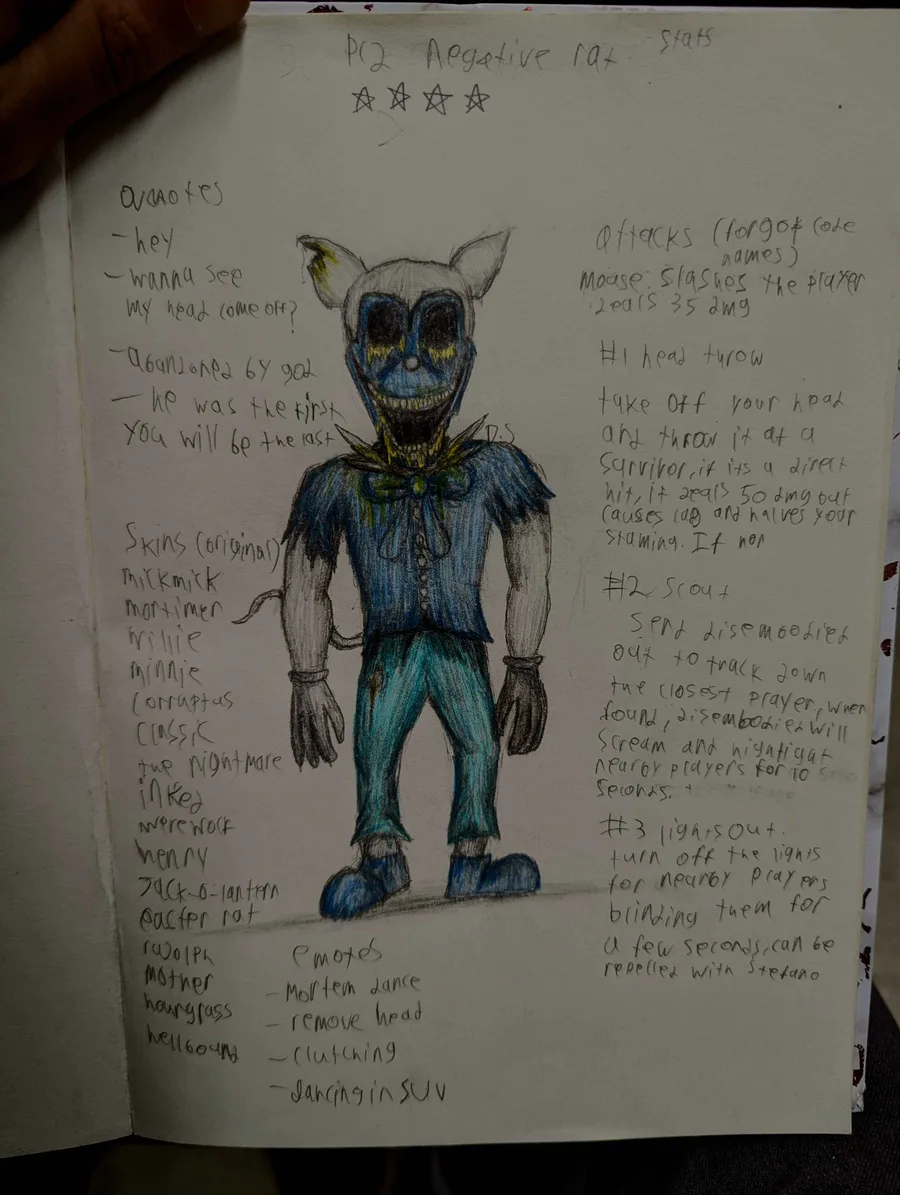 Pc2 Negative rat stats
quotes
- hey
- wanna see
my head come off?
- abandoned by god
- he was the first
you will be the last
D.S
Skins (original)
mickmick
mortimer
willie
minnie
corruptus
classic
the nightmare
inked
werewolf
henry
Jack-o-lantern
easter rat
rudolph
mother
hourglass
hellbound
emotes
- Mortem dance
- remove head
- clutching
- dancing in SUV
attacks (forgot code
names)
mouse: slashes the player
deals 35 dmg
#1 head throw
take off your head
and throw it at a
survivor, if its a direct
hit, it deals 50 dmg but
causes lag and halves your
stamina. If not
#2 Scout
Send disembodied
out to track down
the closest player, when
found, disembodied will
scream and highlight
nearby players for 10
seconds.
#3 lights out.
turn off the lights
for nearby players
blinding them for
a few seconds, can be
repelled with Stefano